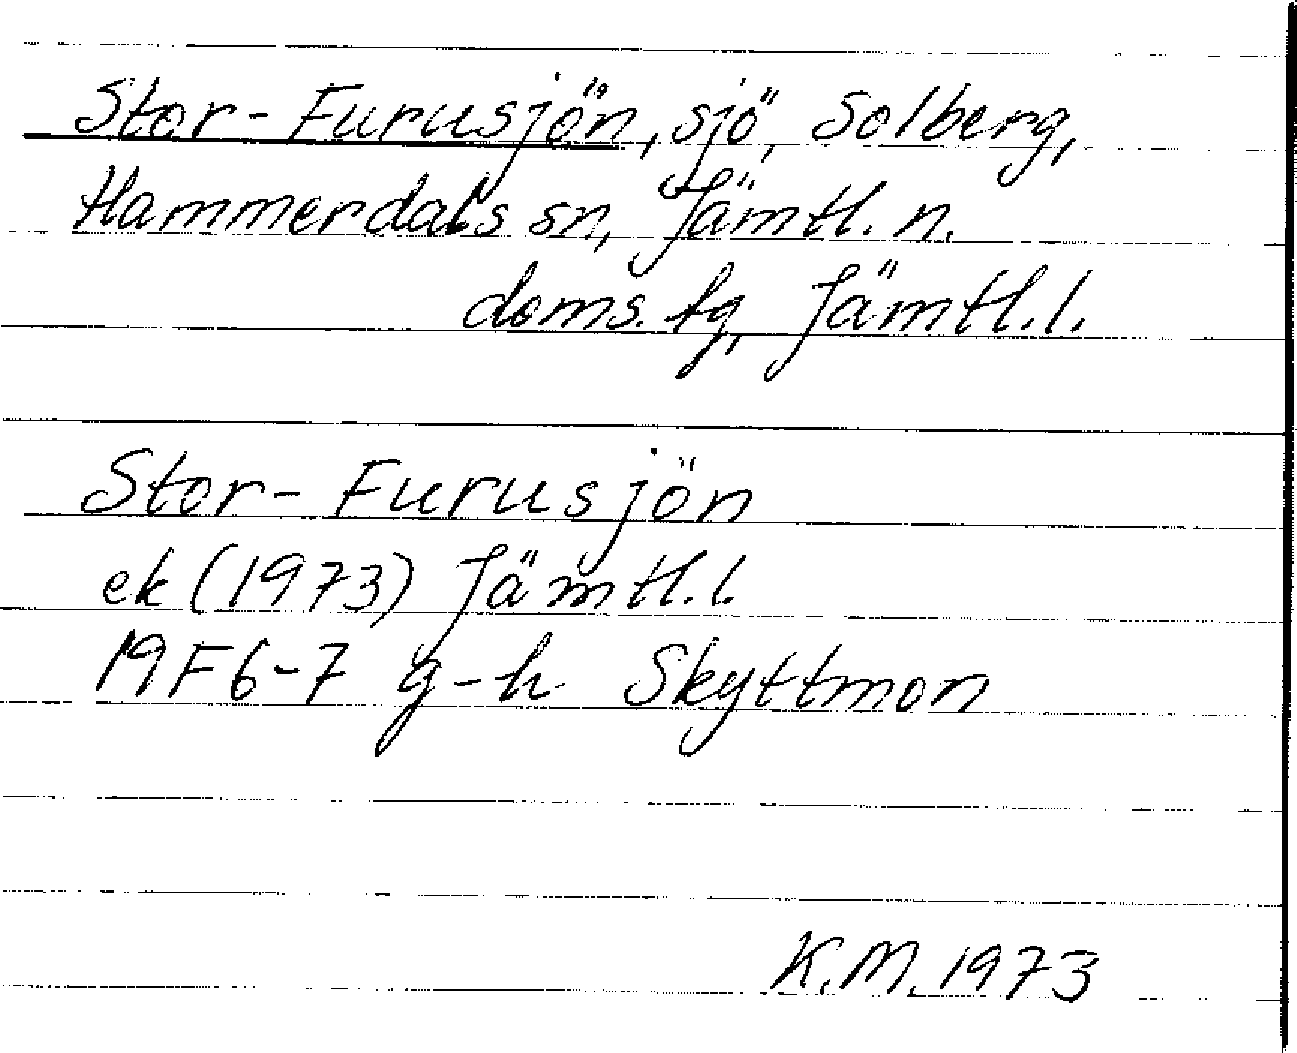 Stor-Furusjön, sjö, Solberg,
Hammerdals sn, Jämtl. n.
doms. fg, Jämtl. l.
Stor-Furusjön
ek (1973) Jämtl. l.
19F 6-7 g-h Skyttmon
K.M. 1973